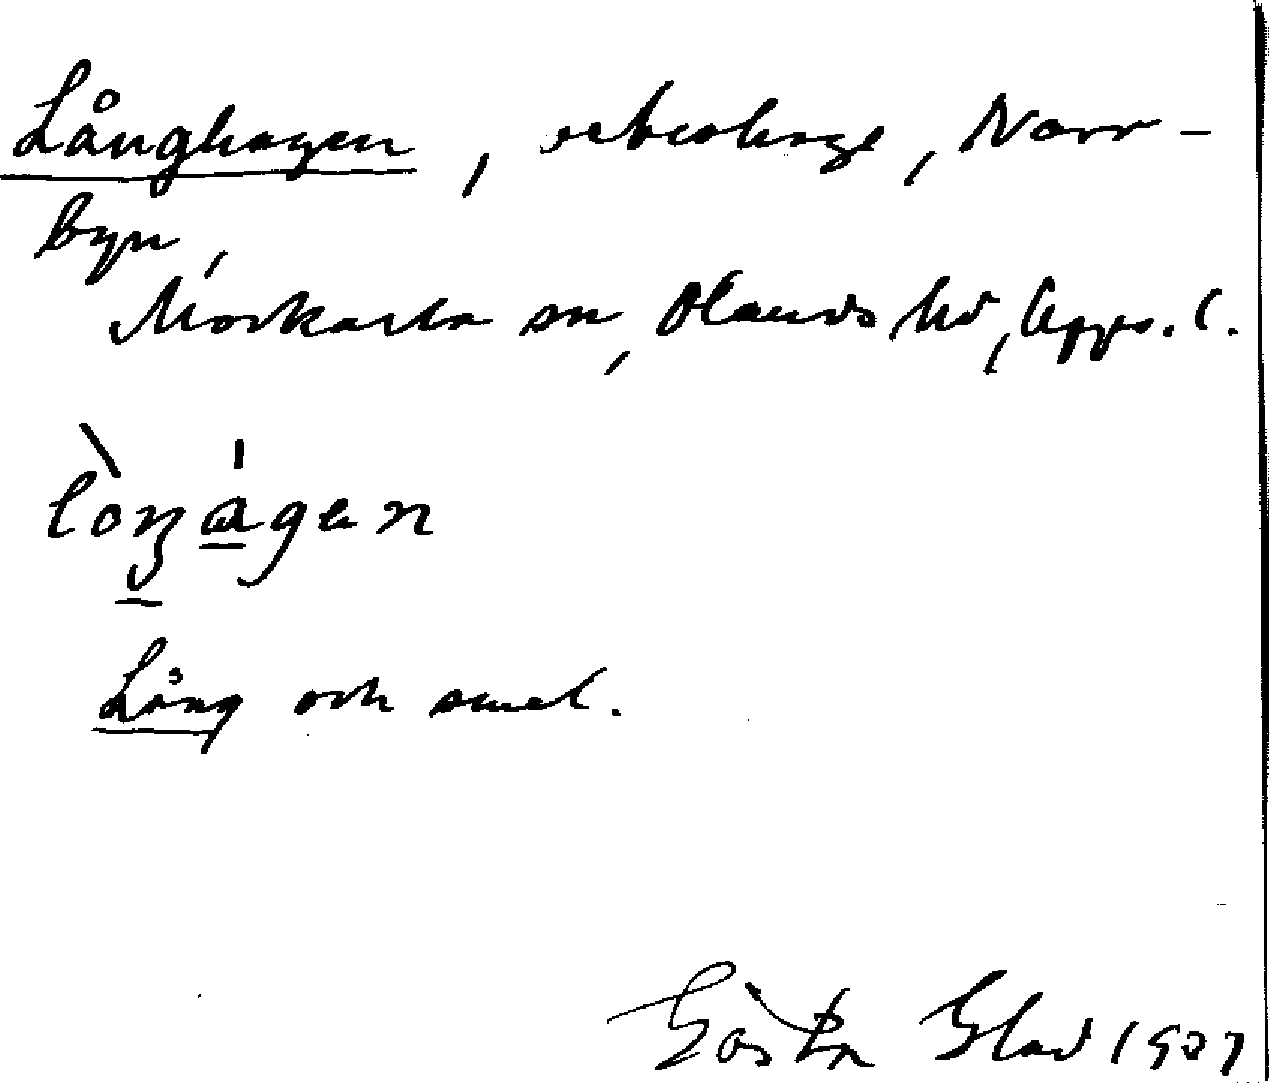 Långhagen, beteshage, Norr-
byn,
Morkarla sn, Olands hd, Upps. l.
lòŋágen
Lång och smal.
Gösta Glad 1937